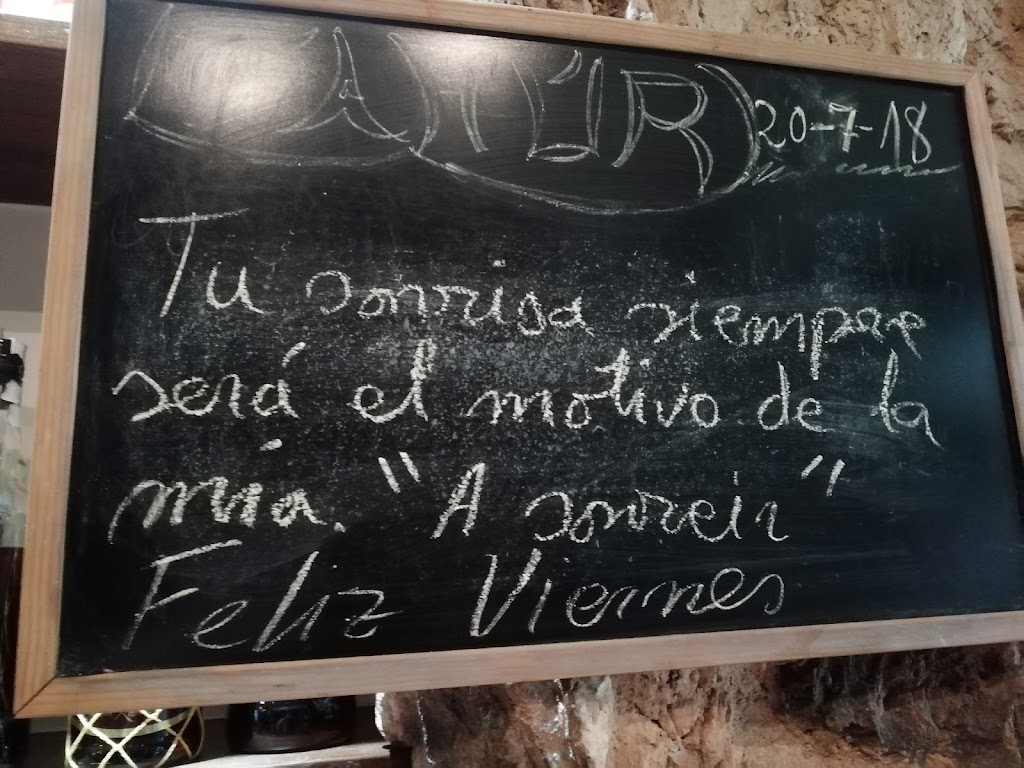 20-7-18
Tu sonrisa siempre
será el motivo de la
mía. "A sonreir"
Feliz Viernes